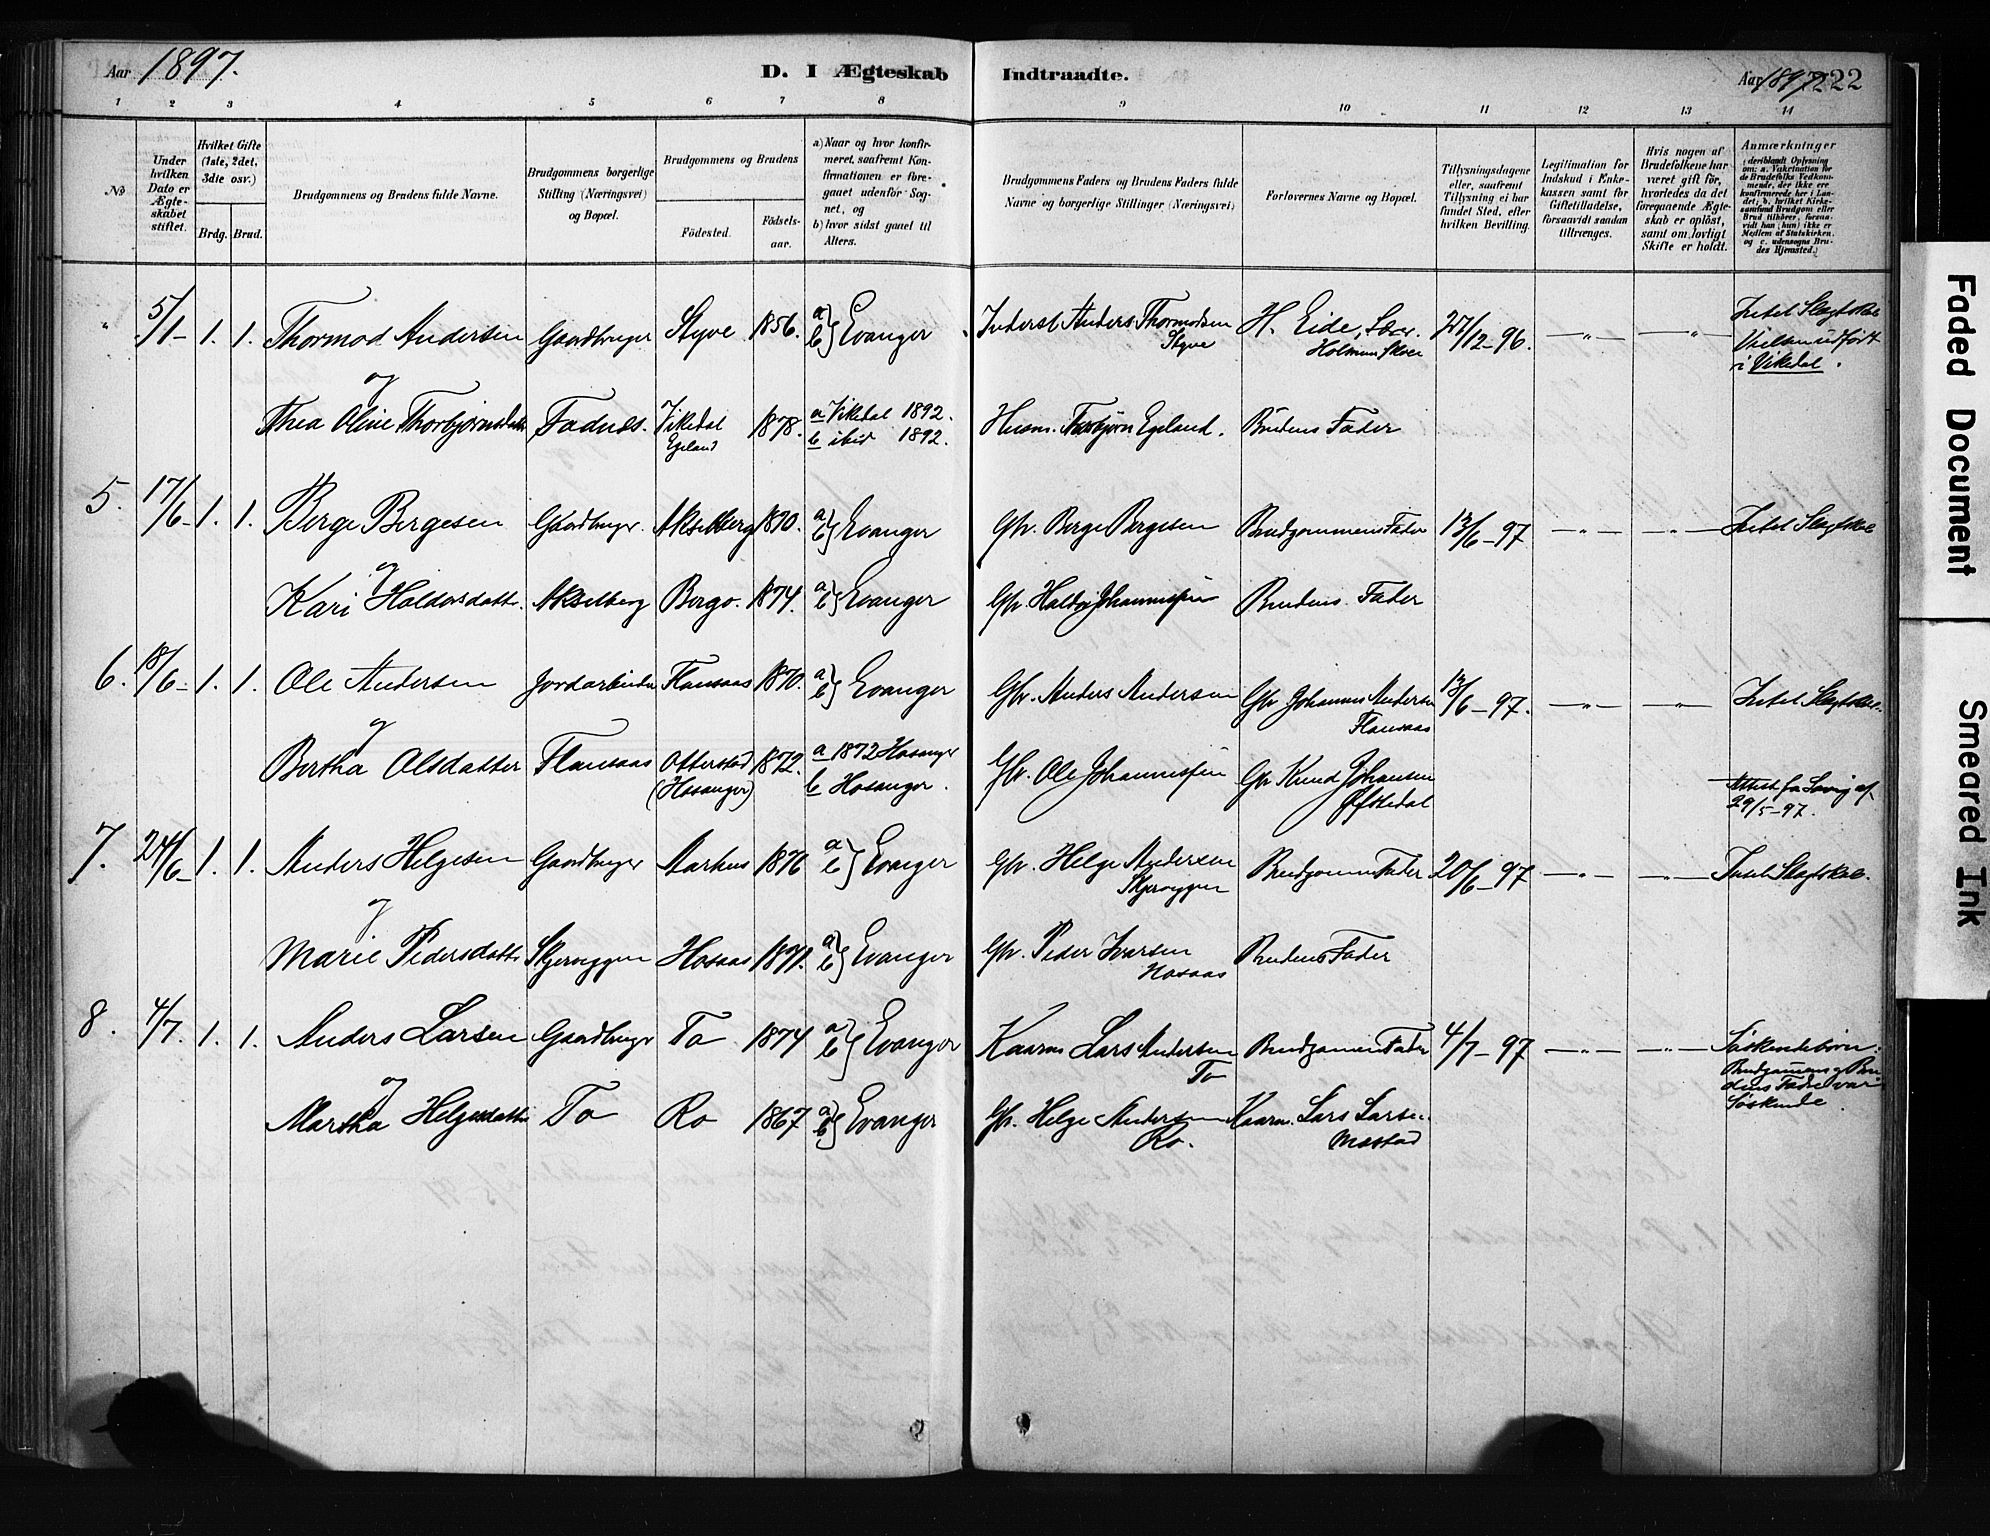 Aar 1897.
D. I Ægteskab Indtraadte.
Aar 1897 222
1 2 3 4 5 6 7 8 9 10 11 12 13 14
No
Under hvilken Dato er Ægteskabet stiftet.
Hvilket Gifte (1ste, 2det, 3die osv.)
Brdg. Brud.
Brudgommens og Brudens fulde Navne.
Brudgommens borgerlige Stilling (Næringsvei) og Bopæl.
Brudgommens og Brudens
Fødested. Fødselsaar.
a) Naar og hvor konfirmeret, saafremt Konfirmationen er foregaaet udenfor Sognet, og
b) hvor sidst gaaet til Alters.
Brudgommens Faders og Brudens Faders fulde Navne og borgerlige Stillinger (Næringsvei)
Forlovernes Navne og Bopæl.
Tillysningsdagene eller, saafremt Tillysning ei har fundet Sted, efter hvilken Bevilling.
Legitimation for Indskud i Enkekassen samt for Giftetilladelse, forsaavidt saadan tiltrænges.
Hvis nogen af Brudefolkene har været gift før, hvorledes da det foregaaende Ægteskab er opløst, samt om lovligt Skifte er holdt.
Anmærkninger
(deriblandt Oplysning om: a. Vakcination for de Brudefolks Vedkommende, der ikke ere konfirmerede her i Landet; b. hvilket Kirkesamfund Brudgom eller Brud tilhører, forsaavidt han (hun) ikke er Medlem af Statskirken, og c. udensogns Brudes Hjemsted.)
" 5/1 1. 1. Thormod Andersen Gaardbruger Styve 1856. a) b) Evanger Inderst Anders Thormodsen Styve H. Eide, Lærer 27/12-96. —"— —"— Intet Slægtskab Vielsen udført i Vikedal.
og
Thea Oline Thorbjørnsdatter Fadnes. Vikedal Egeland 1878. a Vikedal 1892. b ibid 1892. Husm. Torbjørn Egeland. Brudens Fader
5. 17/6 1. 1. Berge Bergesen Gaardbruger Akselberg 1870. a) b) Evanger Gbr. Berge Bergesen Brudgommens Fader 13/6-97 —"— —"— Intet Slægtskab
og
Kari Haldorsdatter. Akselberg Bergo. 1874. a) b) Evanger Gbr. Haldor Johannesen Brudens Fader
6. 18/6 1. 1. Ole Andersen Jordarbeider Flausaas 1870. a) b) Evanger Gbr. Anders Andersen Gbr Johannes Andersen Flausaas 13/6-97. —"— —"— Intet Slægtskab.
og
Bertha Olsdatter Flausaas Otterstad (Hosanger) 1872. a 1872 Hosanger b Hosanger. Gbr. Ole Johannesen Gbr Knud Johansen Attest fra 29/5-97.
7. 24/6 1. 1. Anders Helgesen Gaardbruger Aarhus 1876 a) b) Evanger Gbr. Helge Andersen Skjerveggen Brudgommens Fader 20/6-97 —"— —"— Intet Slægtskab.
og
Marie Pedersdatter Skjerveggen Hosaas 1871. a) b) Evanger Gbr. Peder Ivarsen Hosaas Brudens Fader
8. 4/7. 1. 1. Anders Larsen Gaardbruger To 1874 a) b) Evanger Kaarm. Lars Andersen To Brudgommens Fader 4/7-97 —"— —"— Søskendebørn: Brudgommens og Brudens Fædre var Søskende.
og
Martha Helgesdatter To Ro 1867 a) b) Evanger Gbr. Helge Andersen Ro. Kaarm. Lars Larsen Mostad
Faded Document
Smeared Ink